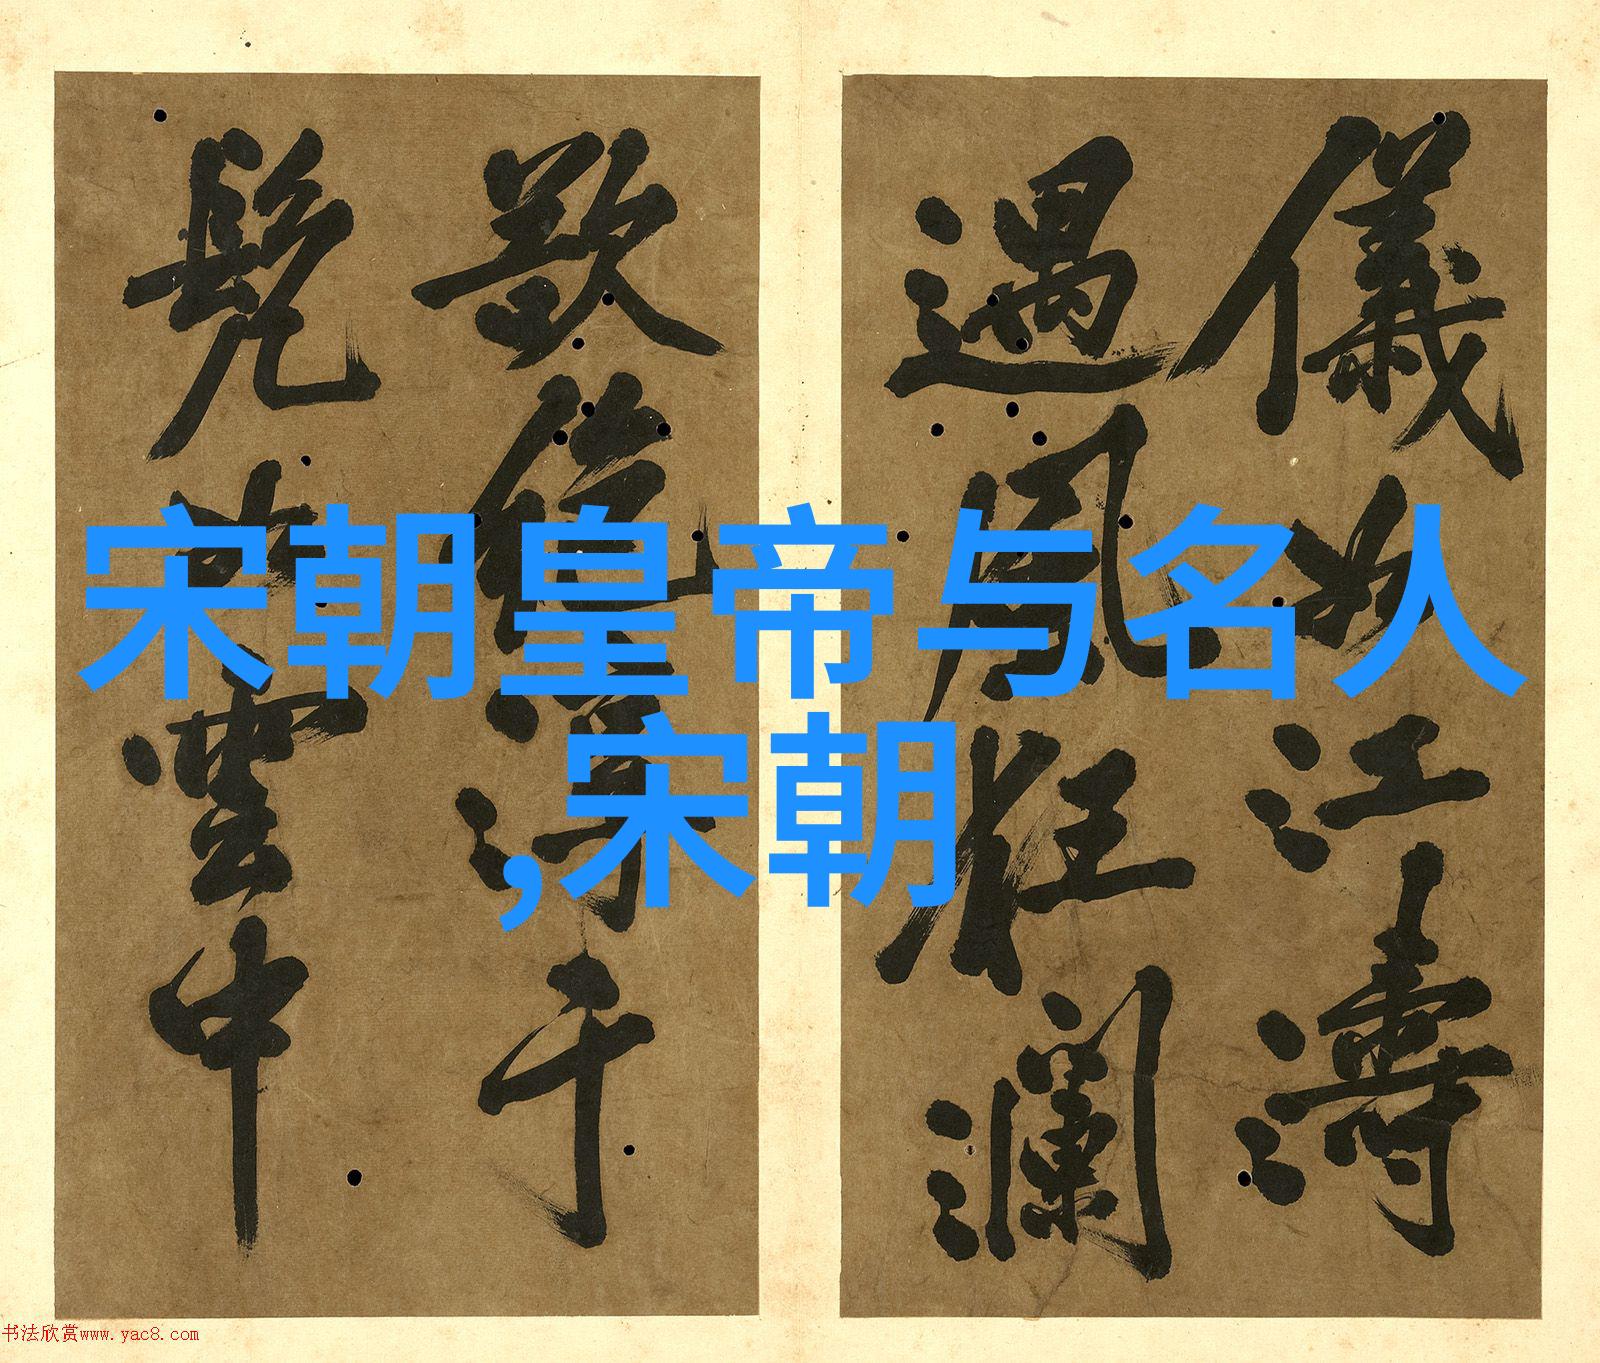 儀如江濤
遇風狂瀾
于
雲中
宋朝皇帝与名人
,宋朝
书法欣赏www.yac8.com